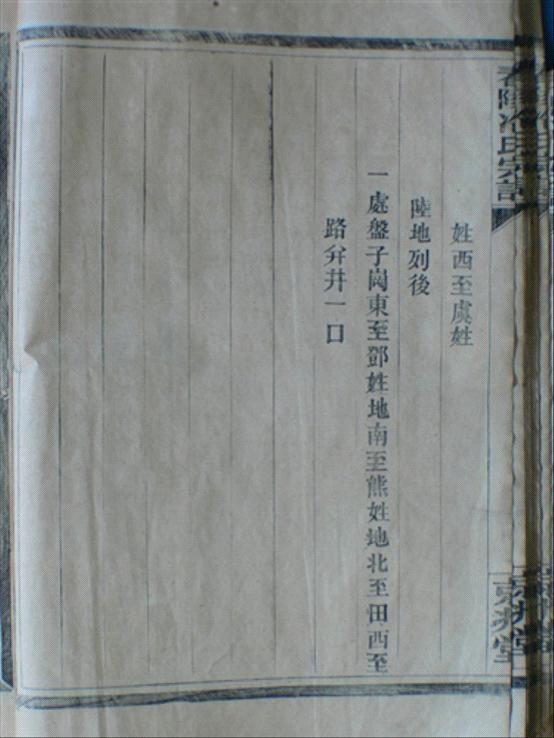 姓西至虞姓
陸地列後
一處盤子崗東至鄧姓地南至熊姓地北至田西至
路分井一口
冷氏宗譜
京兆堂